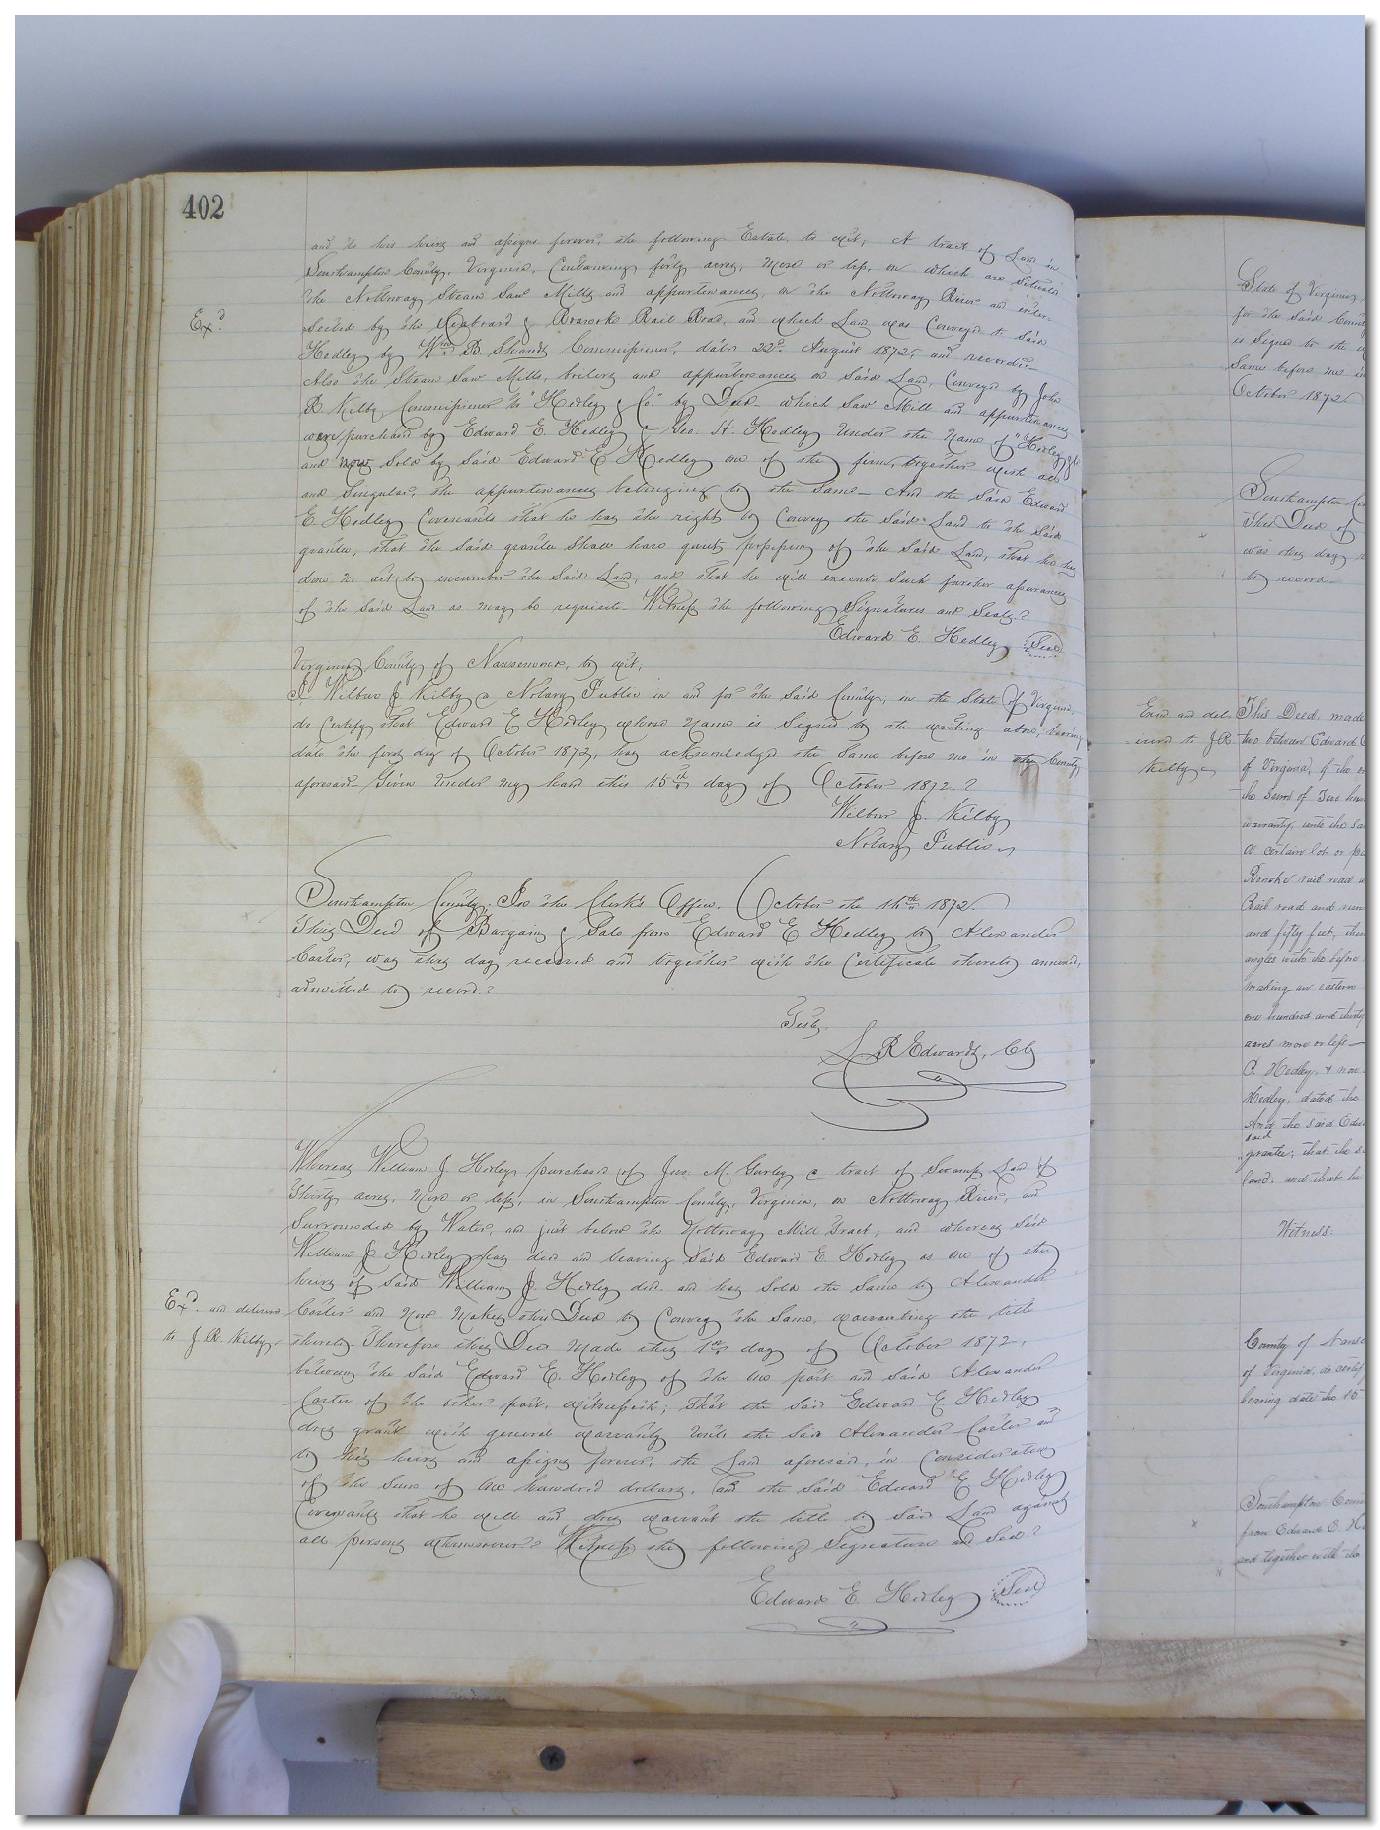 402
and to his heirs and assigns forever, the following Estate, to wit, A tract of Land in
Southampton County, Virginia, Containing forty acres, more or less, on which are situated
the Nottoway Steam Saw Mills and appurtenances, on the Nottoway River and inter-
Exd
sected by the Seaboard & Roanoke Rail Road, and which Land was Conveyed to said
Hedley by Wm B. Shands Commissioner, date 22d August 1872, and recorded
Also the Steam Saw Mills, boilers and appurtenances on said Land, Conveyed by John
R. Kilby, Commissioner to "Hedley & Co" by Deed which Saw Mill and appurtenances
were purchased by Edward E. Hedley & Geo. H. Hedley under the name of "Hedley & Co
and now sold by said Edward E Hedley one of the firm, together with all
and singular, the appurtenances belonging to the same And the said Edward
E. Hedley Covenants that he has the right to Convey the said Land to the said
grantee, that the said grantee shall have quiet possession of the said Land, that he has
done no act to encumber the said Land, and that he will execute such further assurances
of the said Land as may be requisite. Witness the following Signatures and Seals.
Edward E. Hedley Seal
Virginia, County of Nansemond, to wit,
I Wilbur J Kilby a Notary Public in and for the said County, in the State of Virginia,
do Certify that Edward E Hedley whose name is signed to the writing above, bearing
date the first day of October 1872, has acknowledged the same before me in the County
aforesaid. Given under my hand this 15th day of October 1872.
Wilbur J. Kilby
Notary Public
Southampton County, In the Clerk's Office, October the 16th 1872.
This Deed of Bargain & Sale from Edward E Hedley to Alexander
Carter, was this day received and together with the Certificate thereto annexed,
admitted to record.
Teste,
L R Edwards, Clk
Whereas William J Hedley purchased of Jno. M. Gurley a tract of Swamp Land of
Thirty acres, more or less, in Southampton County, Virginia, on Nottoway River, and
Surrounded by Water, and just below the Nottoway Mill Tract, and whereas said
William J Hedley has died and leaving said Edward E Hedley as one of the
heirs of said William J. Hedley died and has sold the same to Alexander
Exd and delivered
to J. R. Kilby
Carter and now makes this Deed to Convey the same, warranting the title
thereto Therefore this Deed made this 1st day of October 1872,
between the said Edward E. Hedley of the one part and said Alexander
Carter of the other part, witnesseth; That the said Edward E. Hedley
does grant with general warranty unto the said Alexander Carter and
to his heirs and assigns forever, the Land aforesaid, in Consideration
of the sum of one hundred dollars, And the said Edward E Hedley
Covenants that he will and does warrant the title to said Land against
all persons whomsoever. Witness the following Signature and Seal
Edward E Hedley Seal
State of Virginia,
for the said County
is signed to the
same before me in
October 1872
Southampton
This Deed of
was this day
to record
Exd and del-
ivered to J.R.
Kilby
This Deed, made
two between Edward
of Virginia, of the
the sum of Two
warranty, unto the
a certain lot or
Roanoke rail road
Rail road and
and fifty feet,
angles with the before
making an eastern
one hundred and thirty
acres more or less
C. Hedley, & now
Hedley, dated the
And the said
said
grantee; that the
land, and that he
Witness:
County of
of Virginia, do certify
bearing date the 15
Southampton
from Edward E. H
and together with the